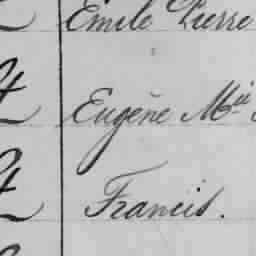 Emile Pierre
Eugène Mie
Francis.